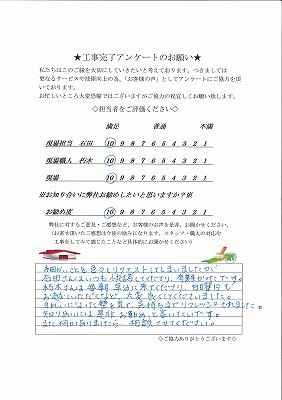 ★工事完了アンケートのお願い★
私たちはこのご縁を大切にしていきたいと考えております。つきましては
更なるサービスや技術向上の為、「お客様の声」としてアンケートにご協力を頂
いております。
お忙しいところ大変恐縮ではございますがご協力の程宜しくお願い致します。
◇担当者をご評価ください◇
満足 普通 不満
現場担当 石田 10 9 8 7 6 5 4 3 2 1
現場職人 朽木 10 9 8 7 6 5 4 3 2 1
現場 10 9 8 7 6 5 4 3 2 1
※お知り合いに弊社お勧めしたいと思いますか?※
お勧め度 10 9 8 7 6 5 4 3 2 1
弊社に対するご意見・ご感想など、お客様のお声を是非、お聞かせください。
(お寄せ頂いたご感想は今後の励みになります。スタッフ・職人の対応や
工事をしてみて感じたことなど具体的にお聞かせください)
細かいことを色々とリクエストしてしまいましたが
石田さんはいつも快諾してくださり、有難かったです。
朽木さんは毎朝早めに来てくださり、日曜日も
お越しいただくなど、大変良くしてくださいました。
きれいになった壁を見て、気持ちまでリフレッシュされました。
知りあいには是非お勧めしたいと思います。
また何かありましたら、相談させてください。
◇ご協力ありがとうございます◇